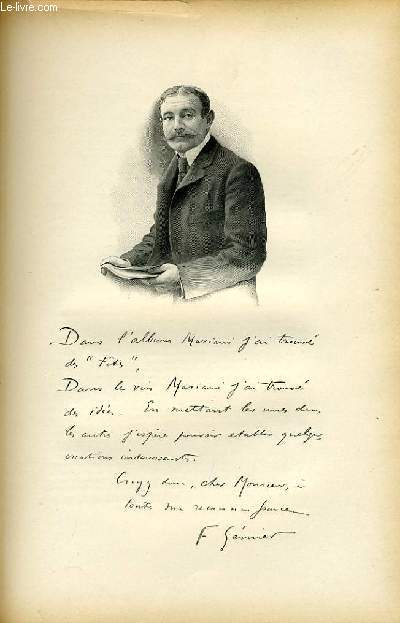 Le-livre.com
Dans l'album Mariani j'ai trouvé
des "têtes",
Dans le vin Mariani j'ai trouvé
des idées. En mettant les unes dans
les autres j'espère pouvoir établir quelques
créations intéressantes.
Croyez donc, cher Monsieur, à
toute ma reconnaissance.
F Gémier